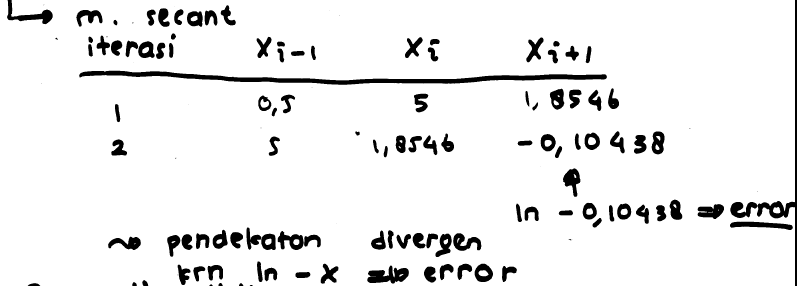 ↳ m. secant
iterasi Xi-1 Xi Xi+1
1 0,5 5 1,8546
2 5 1,8546 -0,10438
↑
ln -0,10438 ⇒ error
~> pendekatan divergen
krn ln -x ⇒ error